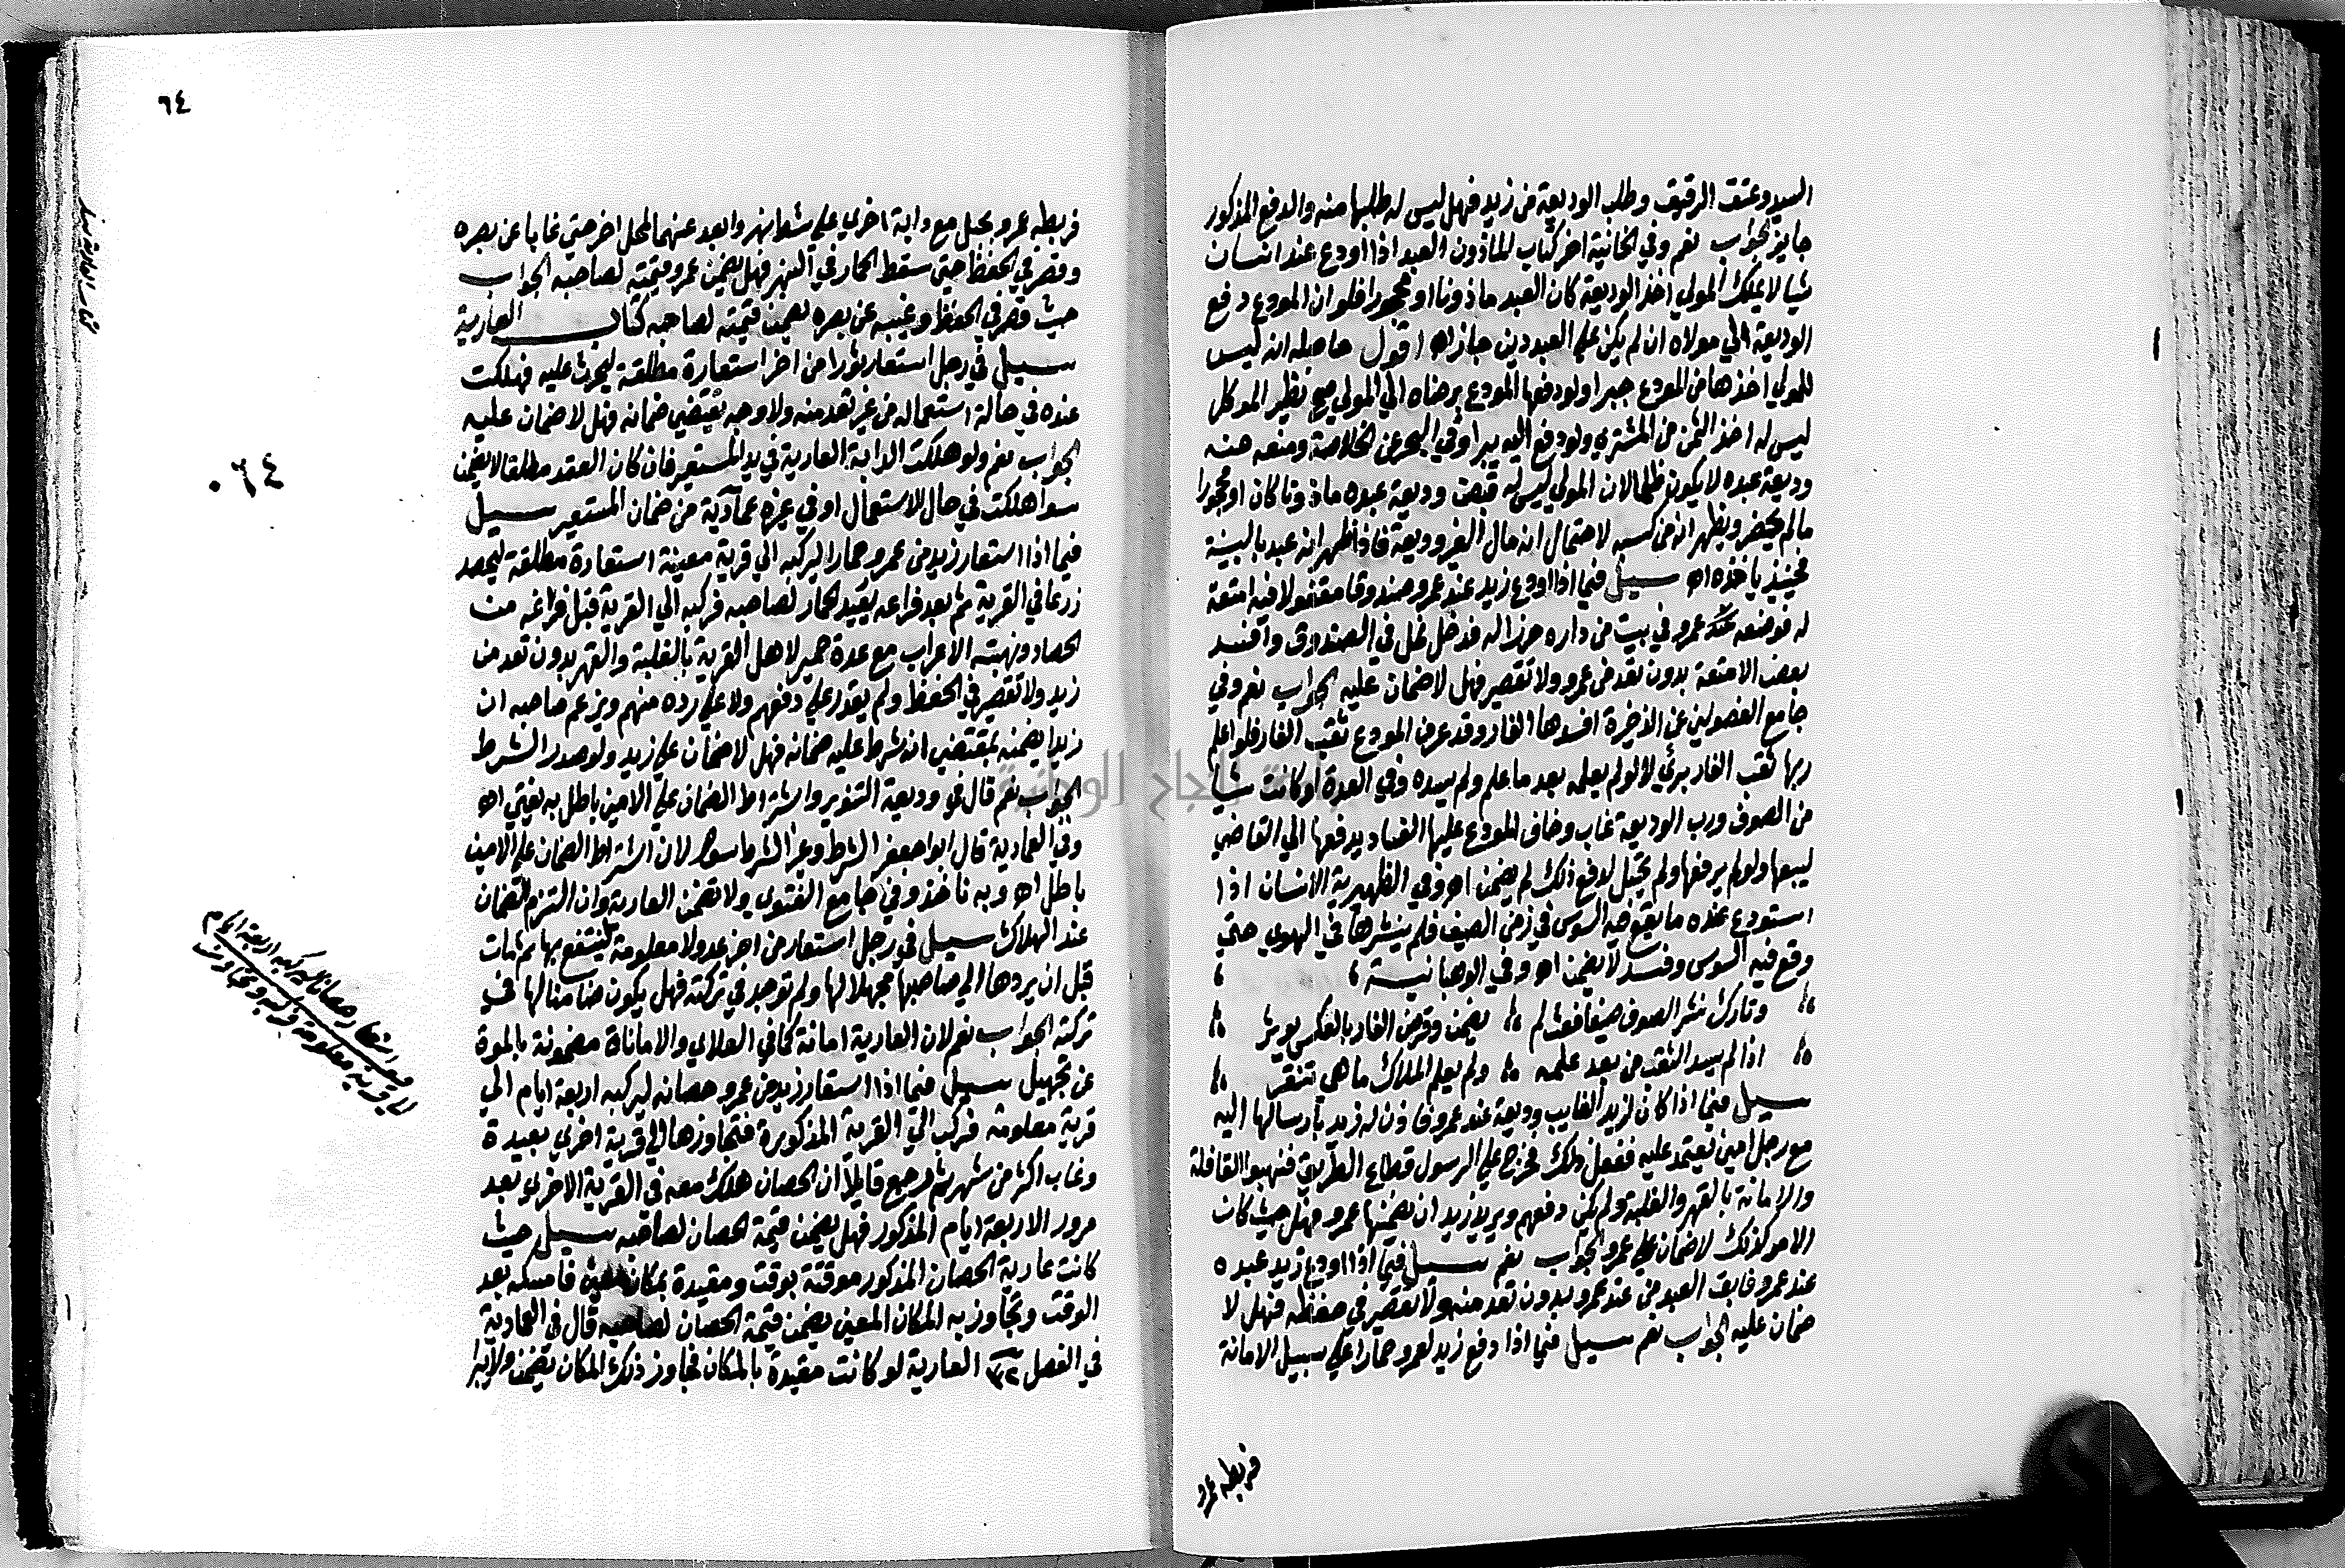 السيد وعتقت الرقيق وطلب الوديعة من زيد فهل ليس له طلبها منه والدفع المذكور
جايز الجواب نعم وفي الخانية اخر كتاب الماذون العبد اذا اودع عند انسان
شيا لا يملك المولي اخذ الوديعة كان العبد ماذونا او محجورا فلو ان المودع دفع
الوديعة الي مولاه ان لم يكن علي العبد دين جاز اه اقول حاصله انه ليس
للمولي اخذها من المودع جبرا ولو دفعها المودع برضاه الي المولي صح نظير الموكل
ليس له اخذ الثمن من المشتري ولو دفع اليه يبرا وفي البحر عن الخلاصة ومنعه منه
وديعة عبده لا يكون ظلما لان المولي ليس له قبض وديعة عبده ماذونا كان او محجورا
مالم يحضر ويظهر انه من كسبه لاحتمال انه مال الغير وديعة فاذا ظهر انه عبد بالبينة
فحينيذ ياخذه اه سيل فيما اذا اودع زيد عند عمرو صندوقا مقفولا فيه امتعة
له فوضعه عمرو في بيت من داره حرزا له فدخل نمل في الصندوق وافسد
بعض الامتعة بدون تعد من عمرو ولا تقصير فهل لا ضمان عليه الجواب نعم وفي
جامع الفصولين عن الذخيرة افسدها الفار وقد عرف المودع ثقب الفار فلو اعلم
ربها ثقب الفار برئ لا لو لم يعلمه بعد ما علم ولم يسده وفي العدة لو كانت شيأ
من الصوف ورب الوديعة غاب وخاف المودع عليها الفساد يدفعها الي القاضي
ليبيعها ولو لم يرفعها ولم يحتل لدفع ذلك لم يضمن اه وفي الظهيرية الانسان اذا
استودع عنده ما يقع فيه السوس في زمن الصيف فلم ينشرها في الهوي حتي
وقع فيه السوس وفسد لا يضمن اه وفي الوهبانية
وتارك نشر الصوف صيفا فعث لم يضمن وقرض الفار بالعكس يوثر
اذا لم يسد الثقب من بعد علمه ولم يعلم الملاك ما هي تنقر
سيل فيما اذا كان لزيد الغايب وديعة عند عمرو فاذن له زيد بارسالها اليه
مع رجل امين يعتمد عليه ففعل ذلك فخرج علي الرسول قطاع الطريق فنهبوا القافلة
والامانة بالقهر والغلبة ولم يمكن دفعهم ويريد زيد ان يضمنها عمرو فهل حيث كان
الامر كذلك لا ضمان علي عمرو الجواب نعم سيل فيما اذا اودع زيد عبده
عند عمرو فابق العبد من عند عمرو بدون تعد منه ولا تقصير في حفظه فهل لا
ضمان عليه الجواب نعم سيل فيما اذا دفع زيد لعمرو حمارا علي سبيل الامانة
فربطه عمرو
٦٤
فربطه عمرو بحبل مع دابة اخري علي شط نهر وابعد عنهما لمحل اخر حتي غابا عن بصره
وقصر في الحفظ حتي سقط الحمار في النهر فهل يضمن عمرو قيمته لصاحبه الجواب
حيث قصر في الحفظ وغيبه عن بصره يضمن قيمته لصاحبه كتاب العارية
سيل في رجل استعار ثورا من اخر استعارة مطلقة ليحرث عليه فهلكت
عنده في حالة استعماله من غير تعد منه ولا وجه يقتضي ضمانه فهل لا ضمان عليه
الجواب نعم ولو هلكت الدابة العارية في يد المستعير فان كان العقد مطلقا لا يضمن
سوا هلكت في حال الاستعمال او في غيره عمادية من ضمان المستعير سيل
فيما اذا استعار زيد من عمرو حمارا ليركبه الي قرية معينة استعارة مطلقة ليحصد
زرعا في القرية ثم بعد فراغه يعيد الحمار لصاحبه فركبه الي القرية قبل فراغه من
الحصاد ونهبته الاعراب مع عدة حمير لاهل القرية بالغلبة والقهر بدون تعد من
زيد ولا تقصير في الحفظ ولم يقدر علي دفعهم ولا علي رده منهم ويزعم صاحبه ان
زيدا يضمنه بمقتضي انه شرط عليه ضمانه فهل لا ضمان علي زيد ولو صدر الشرط
الجواب نعم قال في وديعة التنوير واشتراط الضمان علي الامين باطل به يفتي اه
وفي العمادية قال ابو جعفر الشرط وغير الشرط سوا لان اشتراط الضمان علي الامين
باطل اه وبه ناخذ وفي جامع الفتوي ولا تضمن العارية وان التزم الضمان
عند الهلاك سيل في رجل استعار من اخر عدولا معلومة لينتفع بها ثم مات
قبل ان يردها الي صاحبها مجهلا لها ولم توجد في تركته فهل يكون ضامنا لها في
تركته الجواب نعم لان العارية امانة كما في العلاي والامانات مضمونة بالموت
عن تجهيل سيل فيما اذا استعار زيد من عمرو حصانه ليركبه اربعة ايام الي
قرية معلومة فركب الي القرية المذكورة فتجاوزها الي قرية اخري بعيدة
وغاب اكثر من شهر ثم رجع قايلا ان الحصان هلك معه في القرية الاخري بعد
مرور الاربعة ايام المذكور فهل يضمن قيمة الحصان لصاحبه سيل حيث
كانت عارية الحصان المذكور موقتة بوقت ومقيدة بمكان معين فامسكه بعد
الوقت وتجاوز به المكان المعين يضمن قيمة الحصان لصاحبه قال في العمادية
في الفصل ٣٢ العارية لو كانت مقيدة بالمكان فجاوز ذلك المكان يضمن ولا يبرا
٠٦٤
استعار حصانا ليركبه اربعة ايام
الي قرية معلومة فركبه وتجاوزه
جامعة النجاح الوطنية